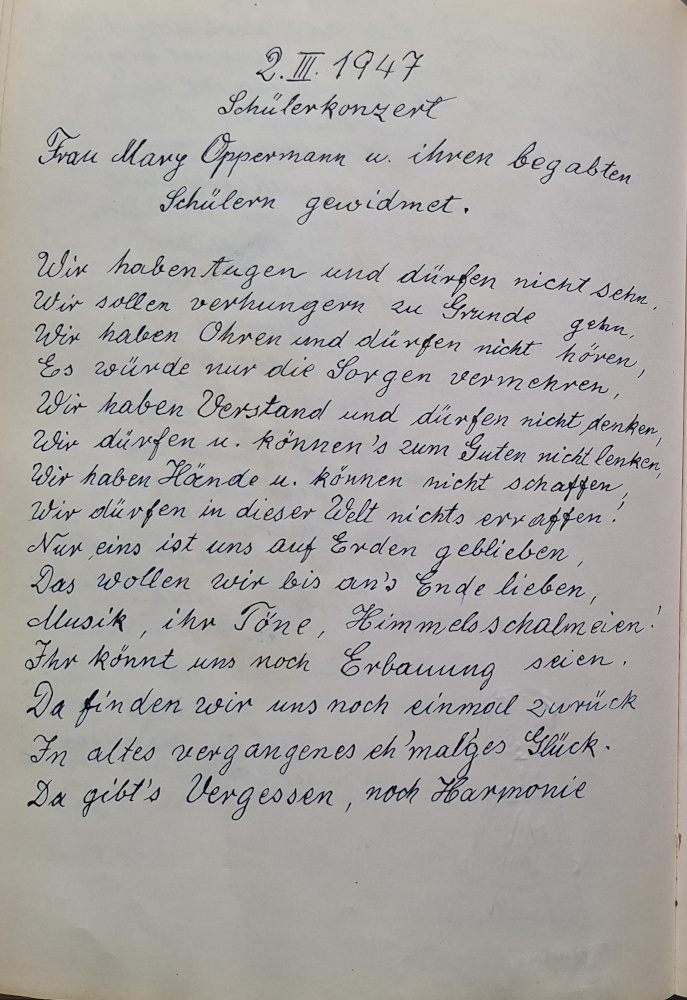 2. III. 1947
Schülerkonzert
Frau Mary Oppermann u. ihren begabten
Schülern gewidmet.
Wir haben Augen und dürfen nicht sehn,
Wir sollen verhungern zu Grunde gehn,
Wir haben Ohren und dürfen nicht hören,
Es würde nur die Sorgen vermehren,
Wir haben Verstand und dürfen nicht denken,
Wir dürfen u. können's zum Guten nicht lenken,
Wir haben Hände u. können nicht schaffen,
Wir dürfen in dieser Welt nichts erraffen!
Nur eins ist uns auf Erden geblieben,
Das wollen wir bis an's Ende lieben,
Musik, ihr Töne, Himmelsschalmeien!
Ihr könnt uns noch Erbauung seien.
Da finden wir uns noch einmal zurück
In altes vergangenes eh'mal'ges Glück.
Da gibt's Vergessen, noch Harmonie